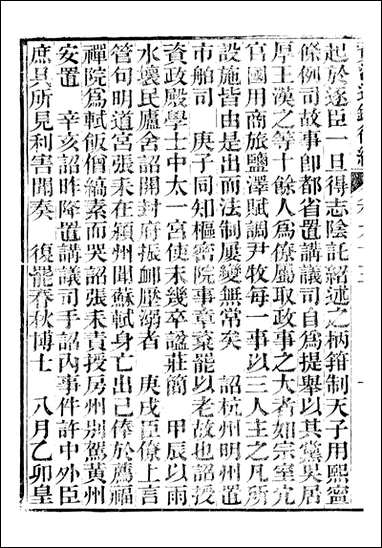 起於逐臣一旦得志陰託紹述之柄箝制天子用熙寧
條例司故事卽都省置講議司自爲提舉以其黨吳居
厚王漢之等十餘人爲僚屬取政事之大者如宗室冗
官國用商旅鹽澤賦調尹牧每一事以三人主之凡所
設施皆由是出而法制屢變無常矣　詔杭州明州置
市舶司　庚子同知樞密院事章楶罷以老故也詔授
資政殿學士中太一宮使未幾卒謚莊簡　甲辰以雨
水壞民廬舍詔開封府振卹壓溺者　庚戌臣僚上言
管句明道宮張耒在潁州聞蘇軾身亡出己俸於薦福
禪院爲軾飯僧縞素而哭詔張耒責授房州別駕黃州
安置　辛亥詔昨降置講議司手詔內事件許中外臣
庶具所見利害聞奏　復罷春秋博士　八月乙卯皇